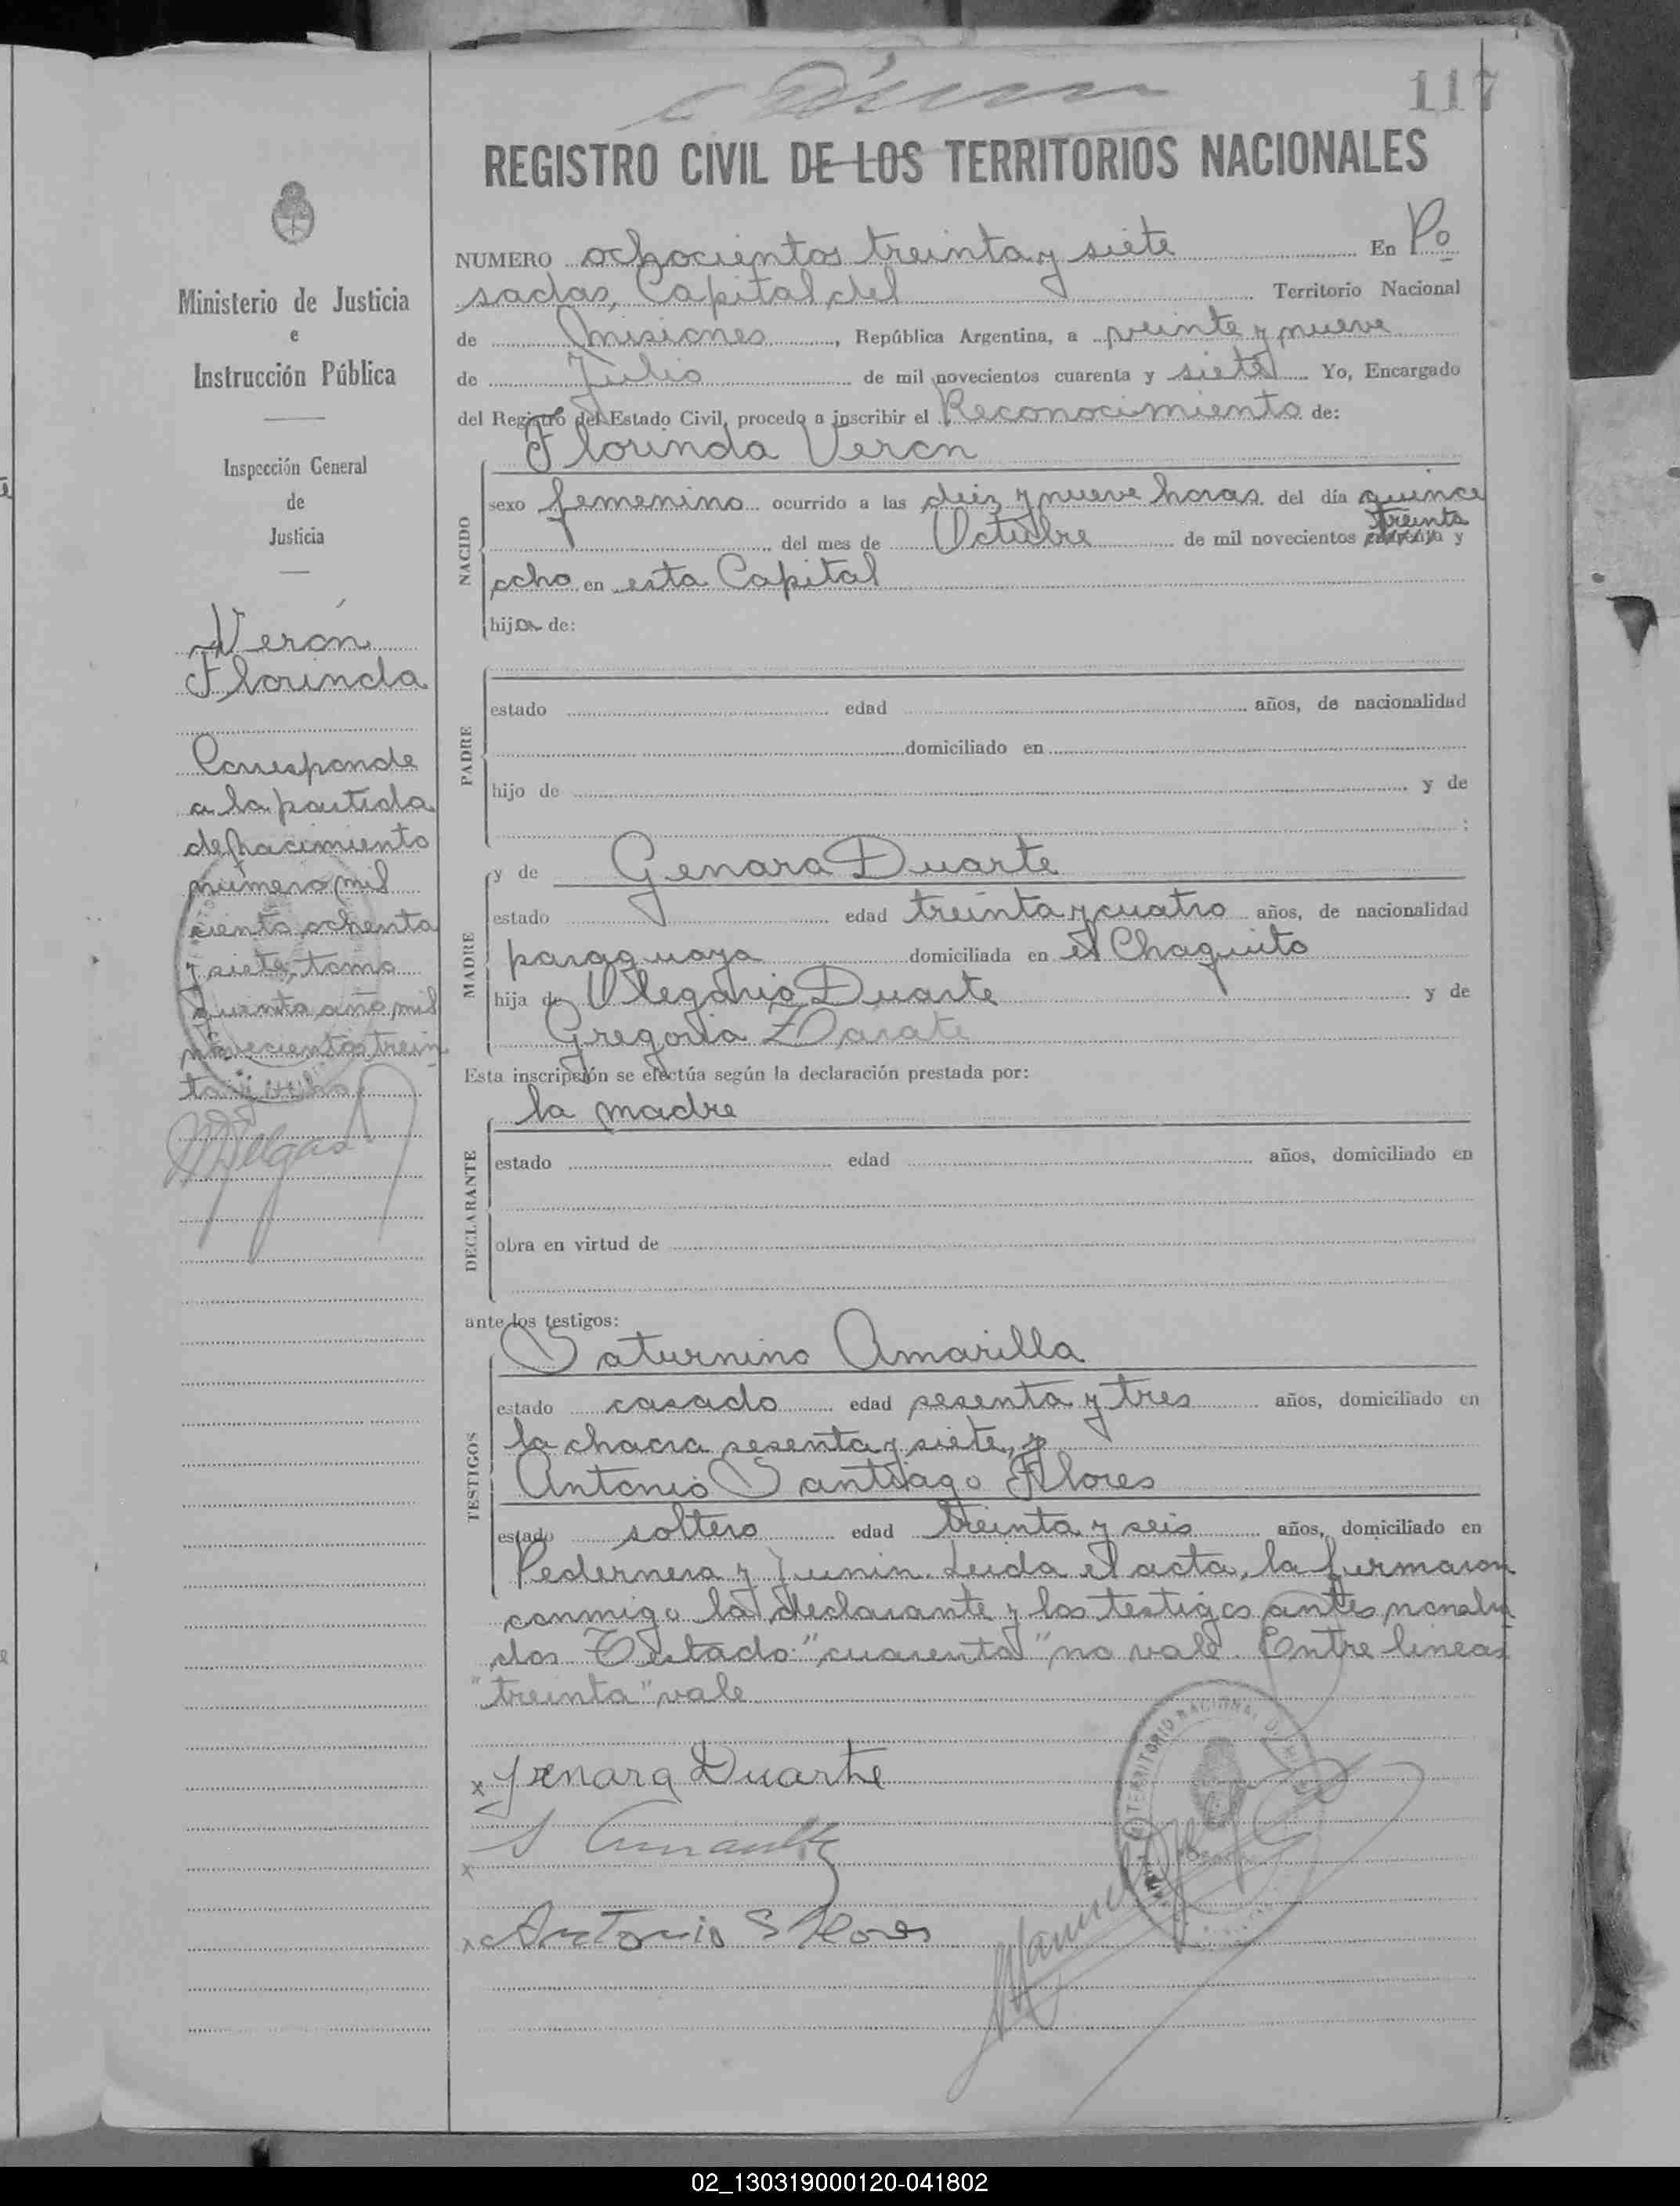 117
REGISTRO CIVIL DE LOS TERRITORIOS NACIONALES
Ministerio de Justicia
e
Instrucción Pública
Inspección General
de
Justicia
Verón
Florinda
Corresponde
a la partida
de nacimiento
número mil
ciento ochenta
y siete, tomo
quinto año mil
novecientos trein
ta y ocho
NUMERO ochocientos treinta y siete En Po
sadas, Capital del Territorio Nacional
de Misiones, República Argentina, a veinte y nueve
de Julio de mil novecientos cuarenta y siete Yo, Encargado
del Registro del Estado Civil, procedo a inscribir el Reconocimiento de:
Florinda Veron
NACIDO
sexo femenino ocurrido a las diez y nueve horas del día quince
treinta
del mes de Octubre de mil novecientos cuarenta y
ocho en esta Capital
hija de:
PADRE
estado edad años, de nacionalidad
domiciliado en
hijo de y de
;
MADRE
y de Genara Duarte
estado edad treinta y cuatro años, de nacionalidad
paraguaya domiciliada en el Chaquito
hija de Olegario Duarte y de
Gregoria Zarate
Esta inscripción se efectúa según la declaración prestada por:
DECLARANTE
la madre
estado edad años, domiciliado en
obra en virtud de
ante los testigos:
TESTIGOS
Saturnino Amarilla
estado casado edad sesenta y tres años, domiciliado en
la chacra sesenta y siete, y
Antonio Santiago Flores
estado soltero edad treinta y seis años, domiciliado en
Pedernera y Junin. Leida el acta, la firmaron
conmigo la declarante y los testigos antes nombra
dos Testado: "cuarenta" no vale. Entre lineas
"treinta" vale
x Jenara Duarte
x S Amarilla
x Antonio S Flores
TERRITORIO NACIONAL
02_130319000120-041802